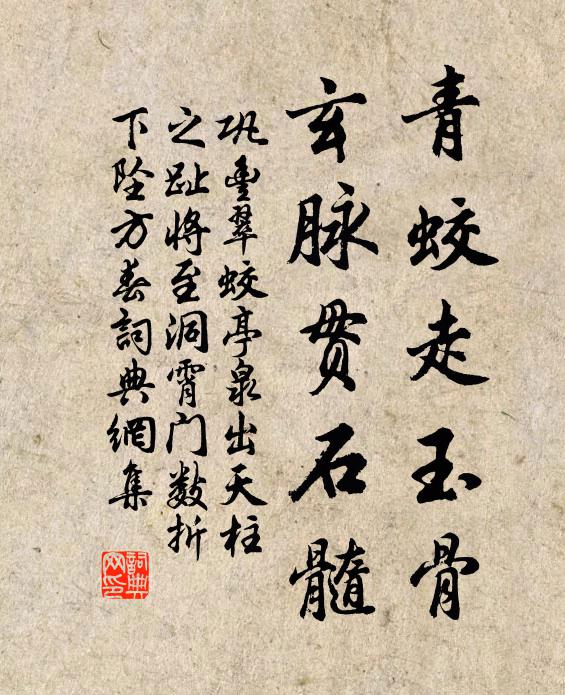 青蛟走玉骨
玄脉贯石髓
巩豊翠蛟亭泉出天柱
之趾将至洞霄门数折
下坠方春詞典網集
詞典
网印